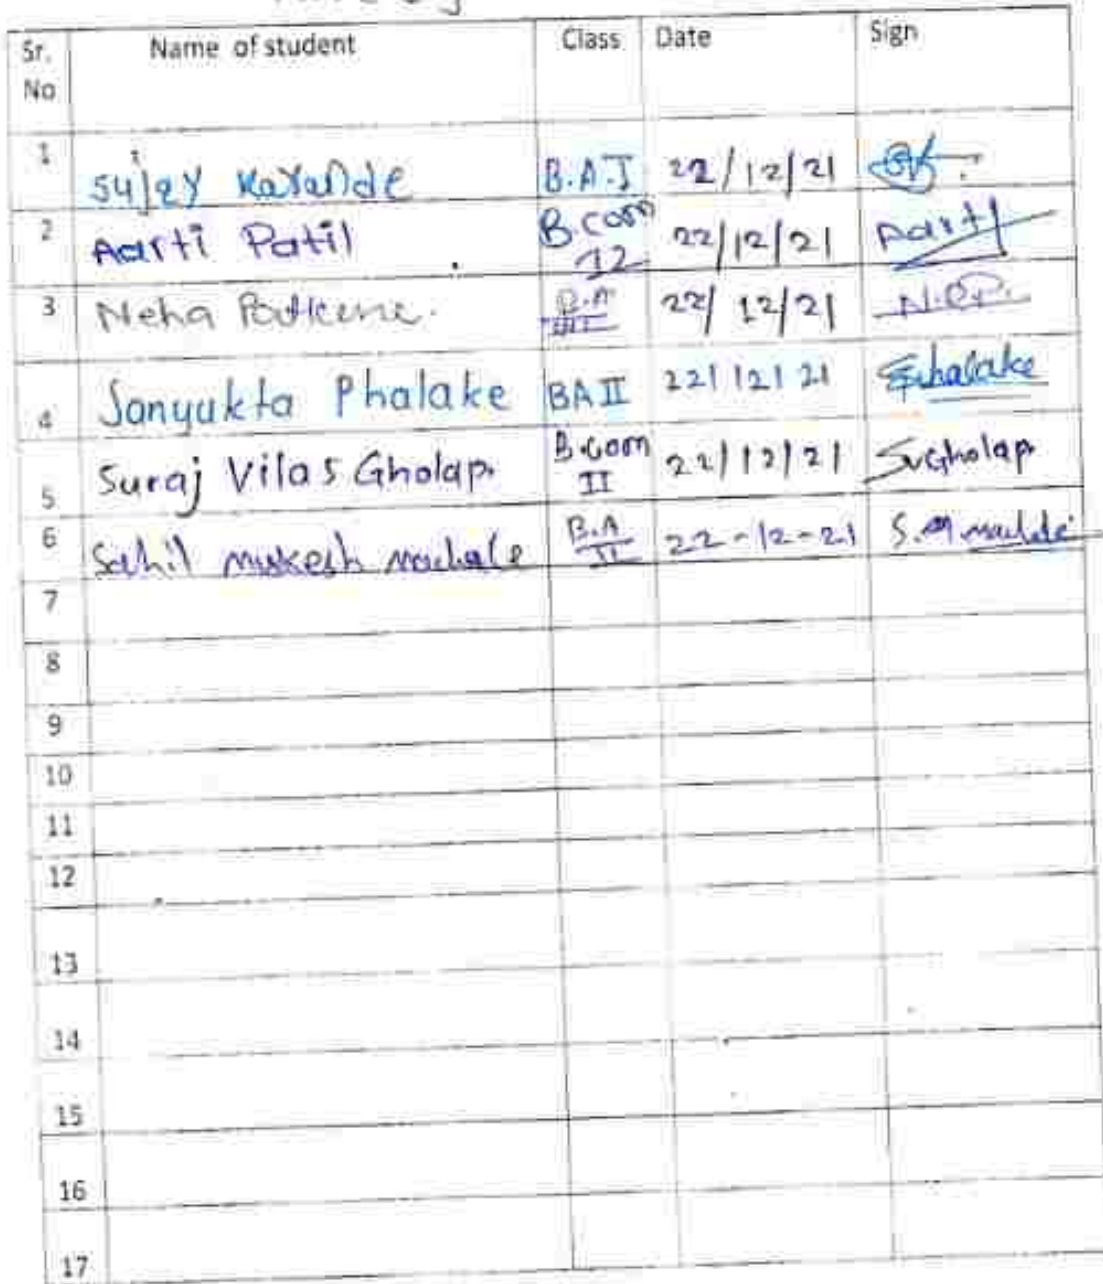 Sr. No Name of student Class Date Sign
1 Sujay Karande B.A.I 22/12/21
2 Aarti Patil B.com 12 22/12/21 Aarti
3 Neha 22/12/21 N.P.
4 Sanyukta Phalake BA II 22/12/21 Phalake
5 Suraj Vilas Gholap. B.com II 22/12/21 SvGholap
6 Sahil mukesh B.A II 22-12-21 S.M.
7
8
9
10
11
12
13
14
15
16
17